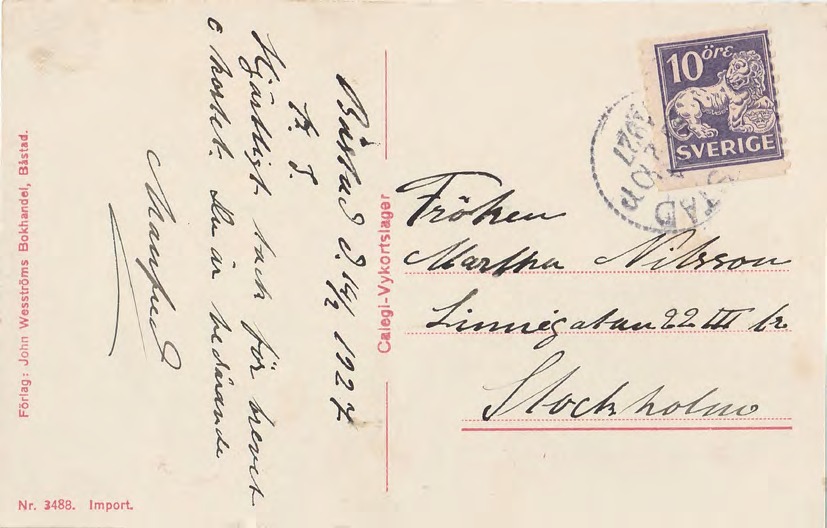 Båstad d. 14/2 1927
K. J.
Hjärtligt tack för brevet
o kortet. Du är bedårande
Manfred
Calegi-Vykortslager
Förlag: John Wesströms Bokhandel, Båstad.
Nr. 3488. Import.
10 öre
SVERIGE
1927
Fröken
Martha Nilsson
Linnégatan 22 III tr
Stockholm